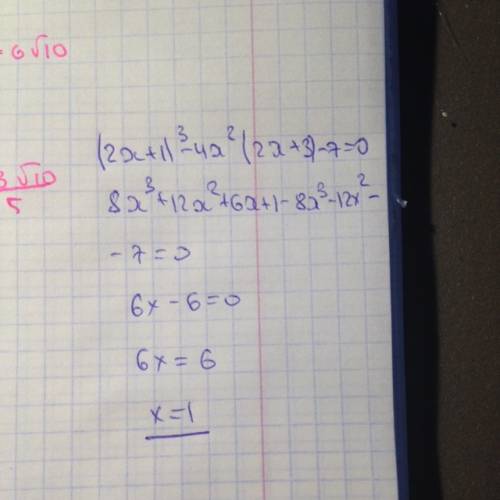 = 6√10
(2x+1)³-4x²(2x+3)-7=0
3√10
5
8x³+12x²+6x+1-8x³-12x²-
-7=0
6x-6=0
6x=6
x=1